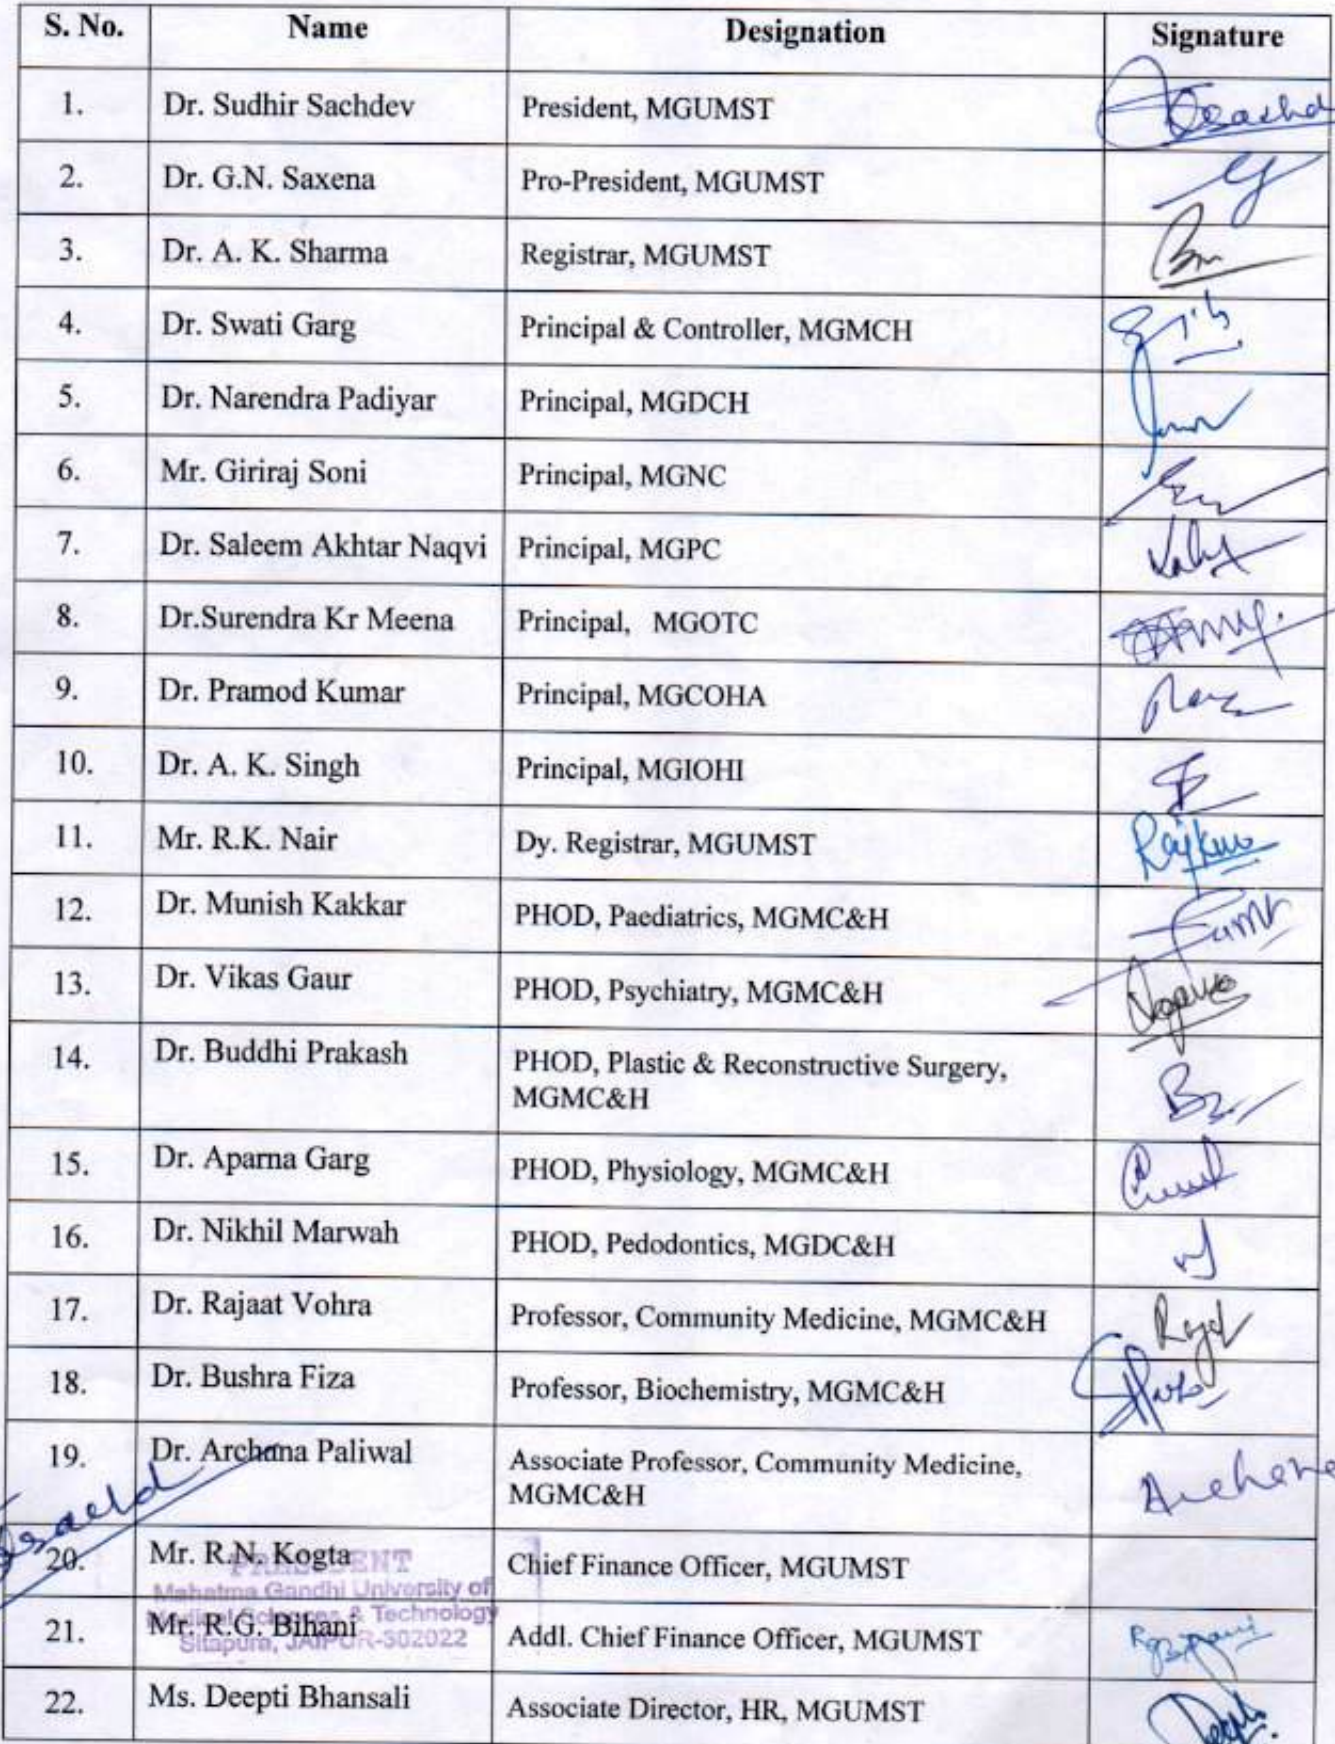 S. No. Name Designation Signature
1. Dr. Sudhir Sachdev President, MGUMST
2. Dr. G.N. Saxena Pro-President, MGUMST
3. Dr. A. K. Sharma Registrar, MGUMST
4. Dr. Swati Garg Principal & Controller, MGMCH
5. Dr. Narendra Padiyar Principal, MGDCH
6. Mr. Giriraj Soni Principal, MGNC
7. Dr. Saleem Akhtar Naqvi Principal, MGPC
8. Dr.Surendra Kr Meena Principal, MGOTC
9. Dr. Pramod Kumar Principal, MGCOHA
10. Dr. A. K. Singh Principal, MGIOHI
11. Mr. R.K. Nair Dy. Registrar, MGUMST
12. Dr. Munish Kakkar PHOD, Paediatrics, MGMC&H
13. Dr. Vikas Gaur PHOD, Psychiatry, MGMC&H
14. Dr. Buddhi Prakash PHOD, Plastic & Reconstructive Surgery,
MGMC&H
15. Dr. Aparna Garg PHOD, Physiology, MGMC&H
16. Dr. Nikhil Marwah PHOD, Pedodontics, MGDC&H
17. Dr. Rajaat Vohra Professor, Community Medicine, MGMC&H
18. Dr. Bushra Fiza Professor, Biochemistry, MGMC&H
19. Dr. Archana Paliwal Associate Professor, Community Medicine,
MGMC&H
20. Mr. R.N. Kogta Chief Finance Officer, MGUMST
PRESIDENT
Mahatma Gandhi University of
Medical Sciences & Technology
Sitapura, JAIPUR-302022
21. Mr. R.G. Bihani Addl. Chief Finance Officer, MGUMST
22. Ms. Deepti Bhansali Associate Director, HR, MGUMST